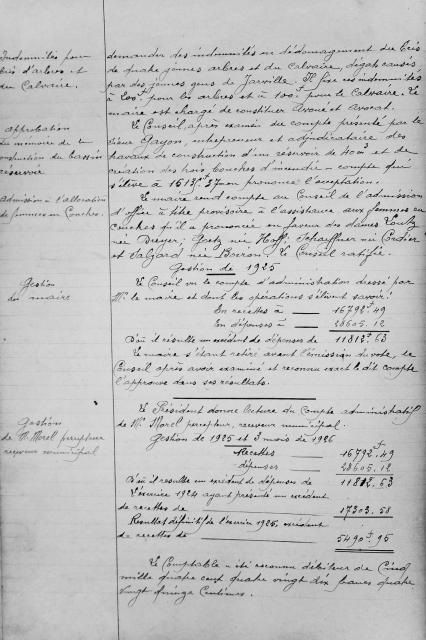 Indemnités pour
bris d'arbres et
du Calvaire.
demander des indemnités en dédommagement du bris
de quatre jeunes arbres et du Calvaire, dégats causés
par des jeunes gens de Jarville. Il fixe ces indemnités
à 200f pour les arbres et à 100f pour le Calvaire. Le
maire est chargé de constituer Avoué et Avocat.
approbation
du mémoire de la
construction du bassin
réservoir
Le Conseil, après examen du compte présenté par le
sieur Gayon, entrepreneur et adjudicataire des
travaux de construction d'un réservoir de 40m3 et de
création des trois bouches d'incendie - compte qui
s'élève à 1613f 37 en prononce l'acceptation.
Admission à l'allocation
de femmes en Couches.
Le maire rend compte au Conseil de l'admission
d'office à titre provisoire à l'assistance aux femmes en
couches qu'il a prononcée en faveur des dames
née Dreyer, Goetz née Hoff, Schaeffner née Cordier
et Salzard née Boeron. Le Conseil ratifie.
Gestion de 1925
Gestion
du maire
Le Conseil vu le compte d'administration dressé par
Mr le maire et dont les opérations s'élèvent savoir:
En recettes à 16792f 49
En dépenses à 28605.12
D'où il résulte un excédent de dépenses de 11812f 63
Le maire s'étant retiré avant l'émission du vote, le
Conseil après avoir examiné et reconnu exact le dit compte
l'approuve dans ses résultats.
Gestion
de M. Morel percepteur
receveur municipal
Le Président donne lecture du Compte administratif
de Mr Morel percepteur, receveur municipal.
Gestion de 1925 et 3 mois de 1926
Recettes 16792f.49
dépenses 28605.12
D'où il resulte un excédent de dépenses de 11812.63
L'exercice 1924 ayant présenté un excédent
de recettes de 17303.58
Résultat définitif de l'exercice 1925, excédent
de recettes de 5490f.95
Le Comptable a été reconnu débiteur de Cinq
mille quatre cent quatre vingt dix francs quatre
vingt quinze Centimes.